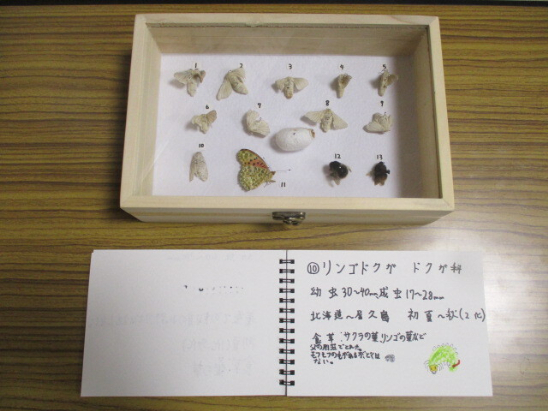 1 2 3 4 5
6 7 8 9
10 11 12 13
⑩リンゴドクガ ドクガ科
幼虫30~40mm成虫17~28mm
北海道~屋久島 初夏~秋(2化)
食草:サクラの葉リンゴの葉など
ない。